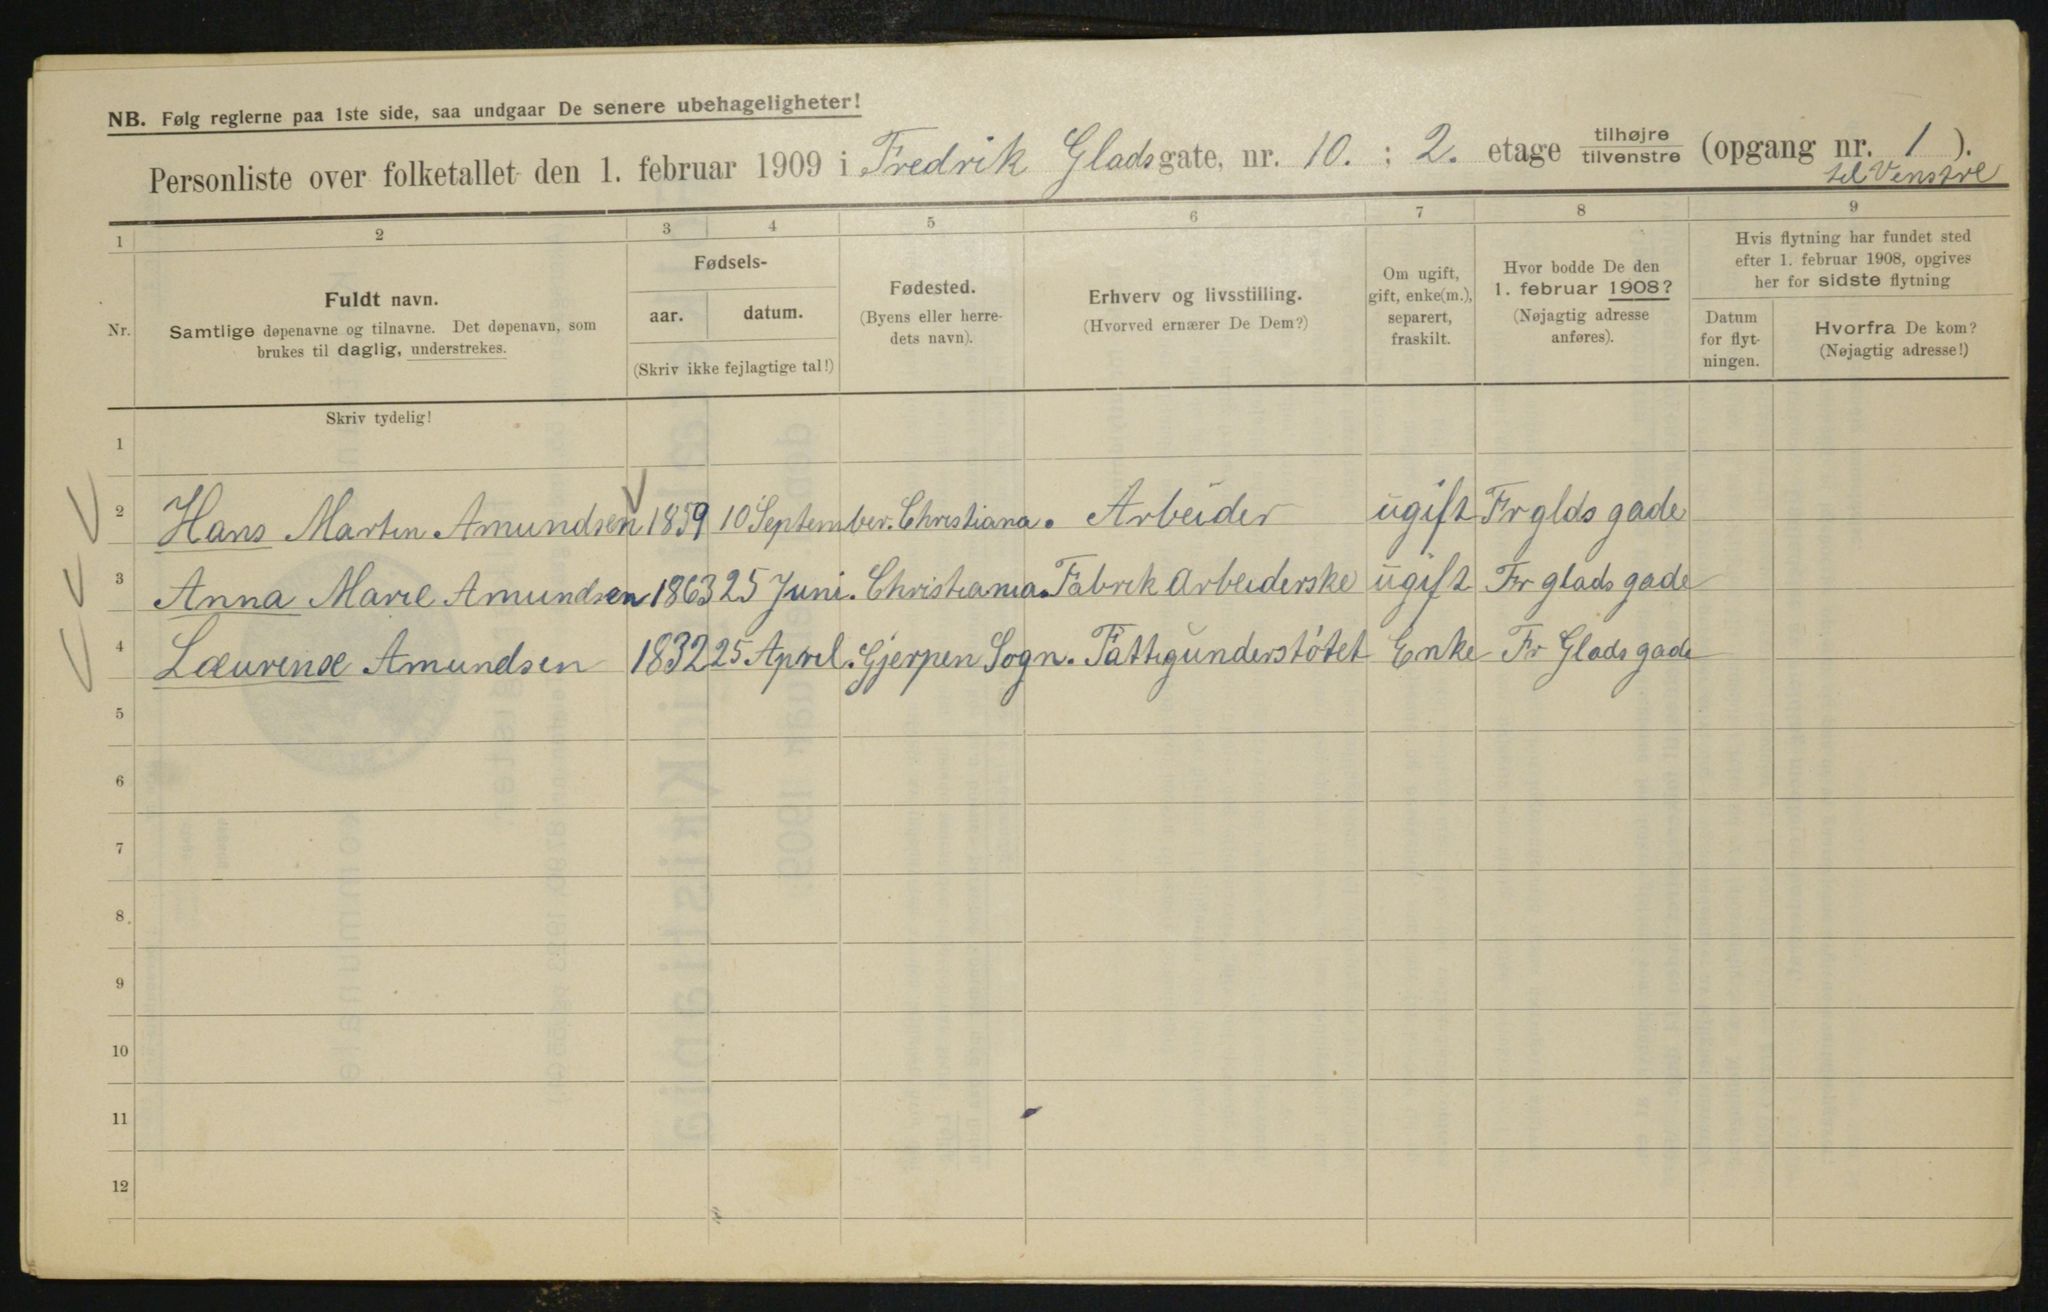 NB. Følg reglerne paa 1ste side, saa undgaar De senere ubehageligheter!
Personliste over folketallet den 1. februar 1909 i Fredrik Gladsgate, nr. 10. ; 2. etage tilhøjre/tilvenstre (opgang nr. 1 ).
til Venstre
1 2 3 4 5 6 7 8 9
Nr.
Fuldt navn.
Samtlige døpenavne og tilnavne. Det døpenavn, som
brukes til daglig, understrekes.
Fødsels-
aar. datum.
(Skriv ikke fejlagtige tal!)
Fødested.
(Byens eller herre-
dets navn).
Erhverv og livsstilling.
(Hvorved ernærer De Dem?)
Om ugift,
gift, enke(m.),
separert,
fraskilt.
Hvor bodde De den
1. februar 1908?
(Nøjagtig adresse
anføres).
Hvis flytning har fundet sted
efter 1. februar 1908, opgives
her for sidste flytning
Datum
for flyt-
ningen.
Hvorfra De kom?
(Nøjagtig adresse!)
Skriv tydelig!
1
2 Hans Martin Amundsen 1859 10 September. Christiana. Arbeider ugift Fr glds gade
3 Anna Marie Amundsen 1863 25 Juni. Christiania. Fabrik Arbeiderske ugift Fr glads gade
4 Laurense Amundsen 1832 25 April. Gjerpen Sogn. Fattigunderstøtet Enke Fr Glads gade
5
6
7
8
9
10
11
12